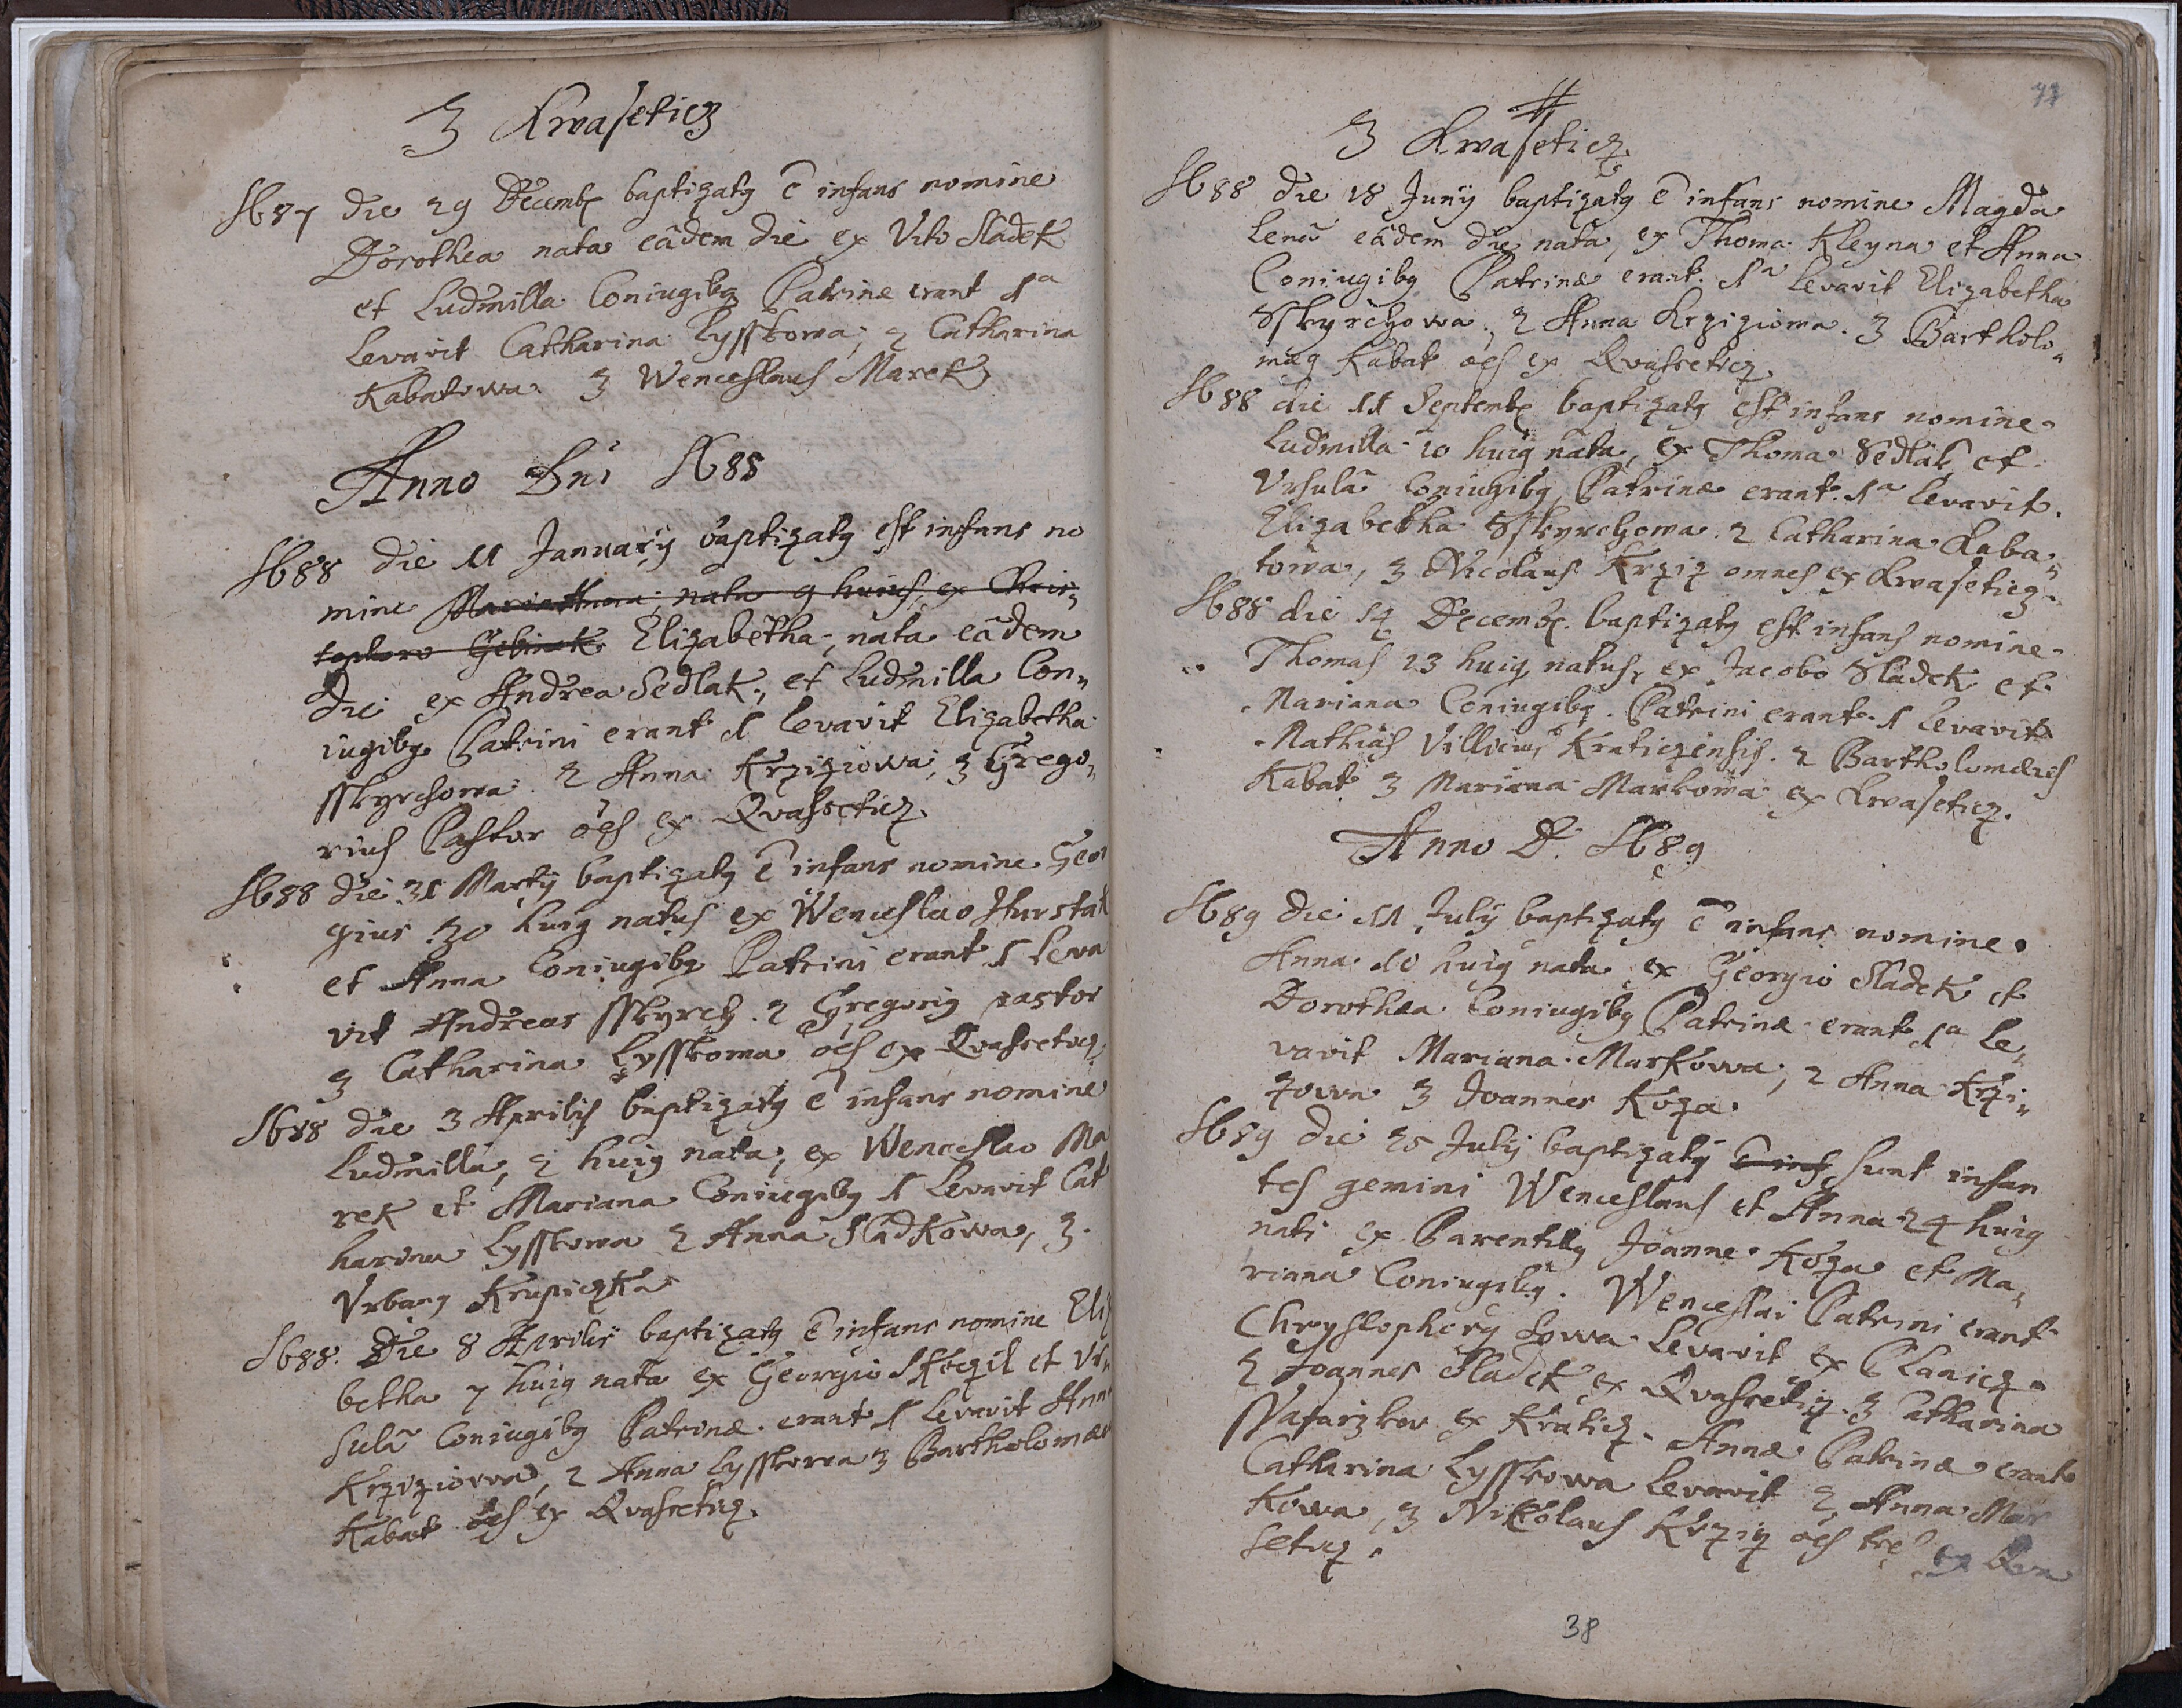 Z Kwaseticz
1687 die 29 Decemb: baptizatq ē infans nomine
Dorothea nata eâdem die ex Vito Sladek
et Ludmilla Coniugibq Patrinæ erant 1a
Levavit Catharina Lysskowa, 2 Catharina
Kabatowa 3 Wenceslaus Marek
Anno Dni 1688
1688 die 11 January baptizatq est infans no
mine Mariaanna, nata 9 huius, ex Chris„
tophoro Elizabetha, nata eâdem
die ex Andrea Sedlak, et Ludmilla Con„
iugibq Patrini erant 1 levavit Elizabetha
sskyrchowa. 2 Anna Krziziowa, 3 Grego„
rius Pastor oēs ex Qvasseticz
1688 die 31 Martij baptizatq ē infans nomine Geor
gius 30 huiq natus ex Wenceslao Hurstak
et Anna Coniugibq Patrini erant 1 Leva
vit Andreas sskyrch. 2 Gregoriq pastor
3 Catharina Lysskowa oēs ex Qvasseticz
1688 die 3 Aprilis baptizatq ē infans nomine
Ludmilla, 2 huiq nata, ex Wenceslao Ma
rek et Mariana Coniugibq 1 Levavit Cat
harina Lysskowa 2 Anna Sladkowa, 3.
Vrbanq Krupiczka
1688. Die 8 Aprilis baptizatq ē infans nomine Eliz
betha 7 huiq nata ex Georgio Skoczil et Vr„
sulâ Coniugibq Patrinæ erant 1 levavit Anna
Krziziowa, 2 Anna Lysskowa 3 Bartholomæu
Kabat oēs ex Qvasseticz.
Z Kwasseticz
1688 die 18 Junij baptizatq ē infans nomine Magda
lena eâdem die nata, ex Thoma Kleyna et Anna
Coniugibq Patrinæ erant. 1a Levavit Elizabetha
Sskyrchowa. 2 Anna Krziziowa. 3 Bartholo„
mæq Kabat oēs ex Qvasseticz.
1688 die 11 Septemb: baptizatq est infans nomine
Ludmilla 10 huiq nata, ex Thoma Sedlak et
Vrsulâ Coniugibq Patrinæ erant. 1a levavit.
Elizabetha Sskyrchowa. 2 Catharina Kaba„
towa, 3 Nicolaus Krziz omnes ex Kwaseticz.
1688 die 14 Decemb. baptizatq est infans nomine
Thomas 13 huiq natus, ex Jacobo Sladek et
Mariana Coniugibq. Patrini erant. 1 levavit
Mathias Villicus Kraticzensis. 2 Bartholomæus
Kabat 3 Mariana Markowa ex Kwaseticz.
Anno D. 1689
1689 die 11 Julij baptizatq ē infans nomine
Anna 10 huiq nata ex Georgio Sladek et
Dorothea Coniugibq Patrinæ erant 1a Le„
vavit Mariana Markowa, 2 Anna Krzi„
zowa 3 Joannes Koza.
1689 die 25 Julij baptizatq ē inf sunt infan
tes gemini Wenceslaus et Anna 24 huiq
nati ex Parentibq Joanne Koza et Ma„
riana Coniugibq. Wenceslai Patrini erant
Chrystophorq Lowa Levavit ex Planicz
2 Joannes Sladek ex Qvasseticz. 3 Catharina
ex Kraticz. Annæ Patrinæ erant
Catharina Lysskowa Levavit 2 Anna Mar
kowa, 3 Nikolaus Krziz oēs ex Qva
seticz.
38